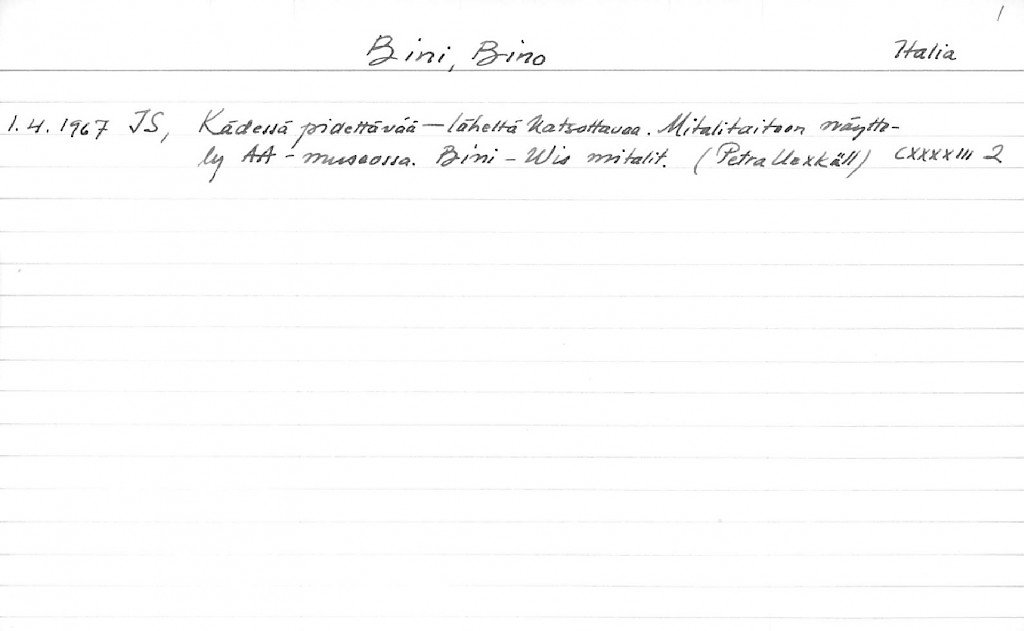 1
Bini, Bino Italia
1.4.1967 IS, Kädessä pidettävää – läheltä katsottavaa. Mitalitaiteen näytte-
ly AA-museossa. Bini-Wis mitalit. (Petra Uexkäll) CXXXXIII 2